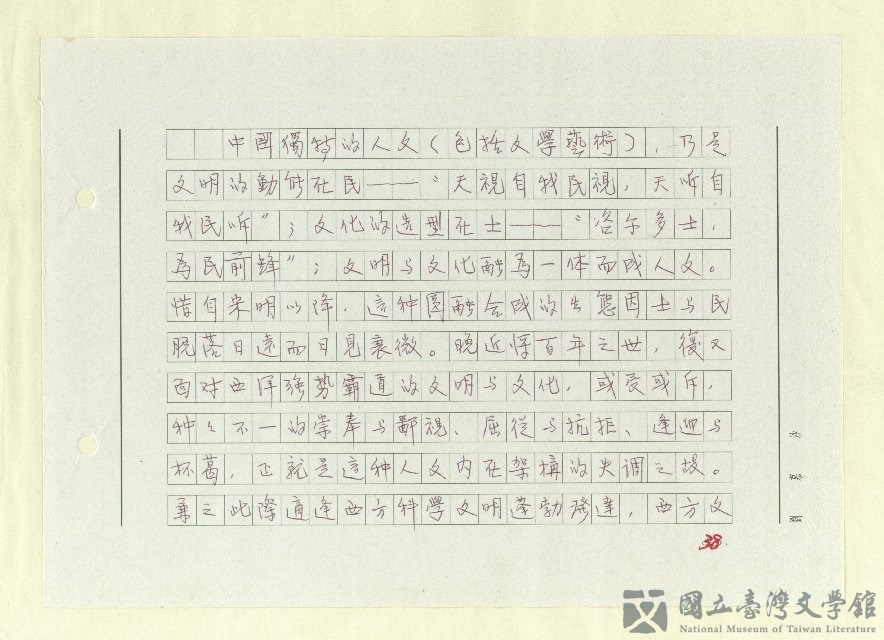 中國獨特的人文（包括文學藝術），乃是
文明的動能在民——“天視自我民視，天听自
我民听”；文化的造型在士——“咨尔多士，
為民前鋒”；文明与文化融為一体而成人文。
惜自宋明以降，这种圓融合成的生態因士与民
脫落日遠而日見衰微。晚近俘百年之世，復又
面对西洋强势霸道的文明与文化，或受或斥，
种々不一的崇奉与鄙視、屈從与抗拒、逢迎与
杯葛，正就是这种人文内在架構的失调之故。
兼之此際適逢西方科學文明蓬勃發達，西方文
38.
國立臺灣文學館
National Museum of Taiwan Literature